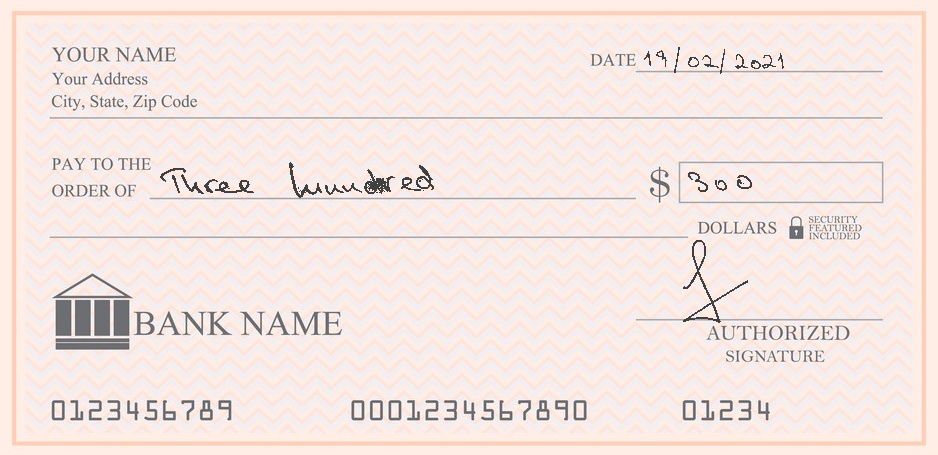 YOUR NAME
Your Address
City, State, Zip Code
DATE 19/02/2021
PAY TO THE
ORDER OF Three hundred $ 300
DOLLARS SECURITY
FEATURED
INCLUDED
BANK NAME
AUTHORIZED
SIGNATURE
0123456789 0001234567890 01234